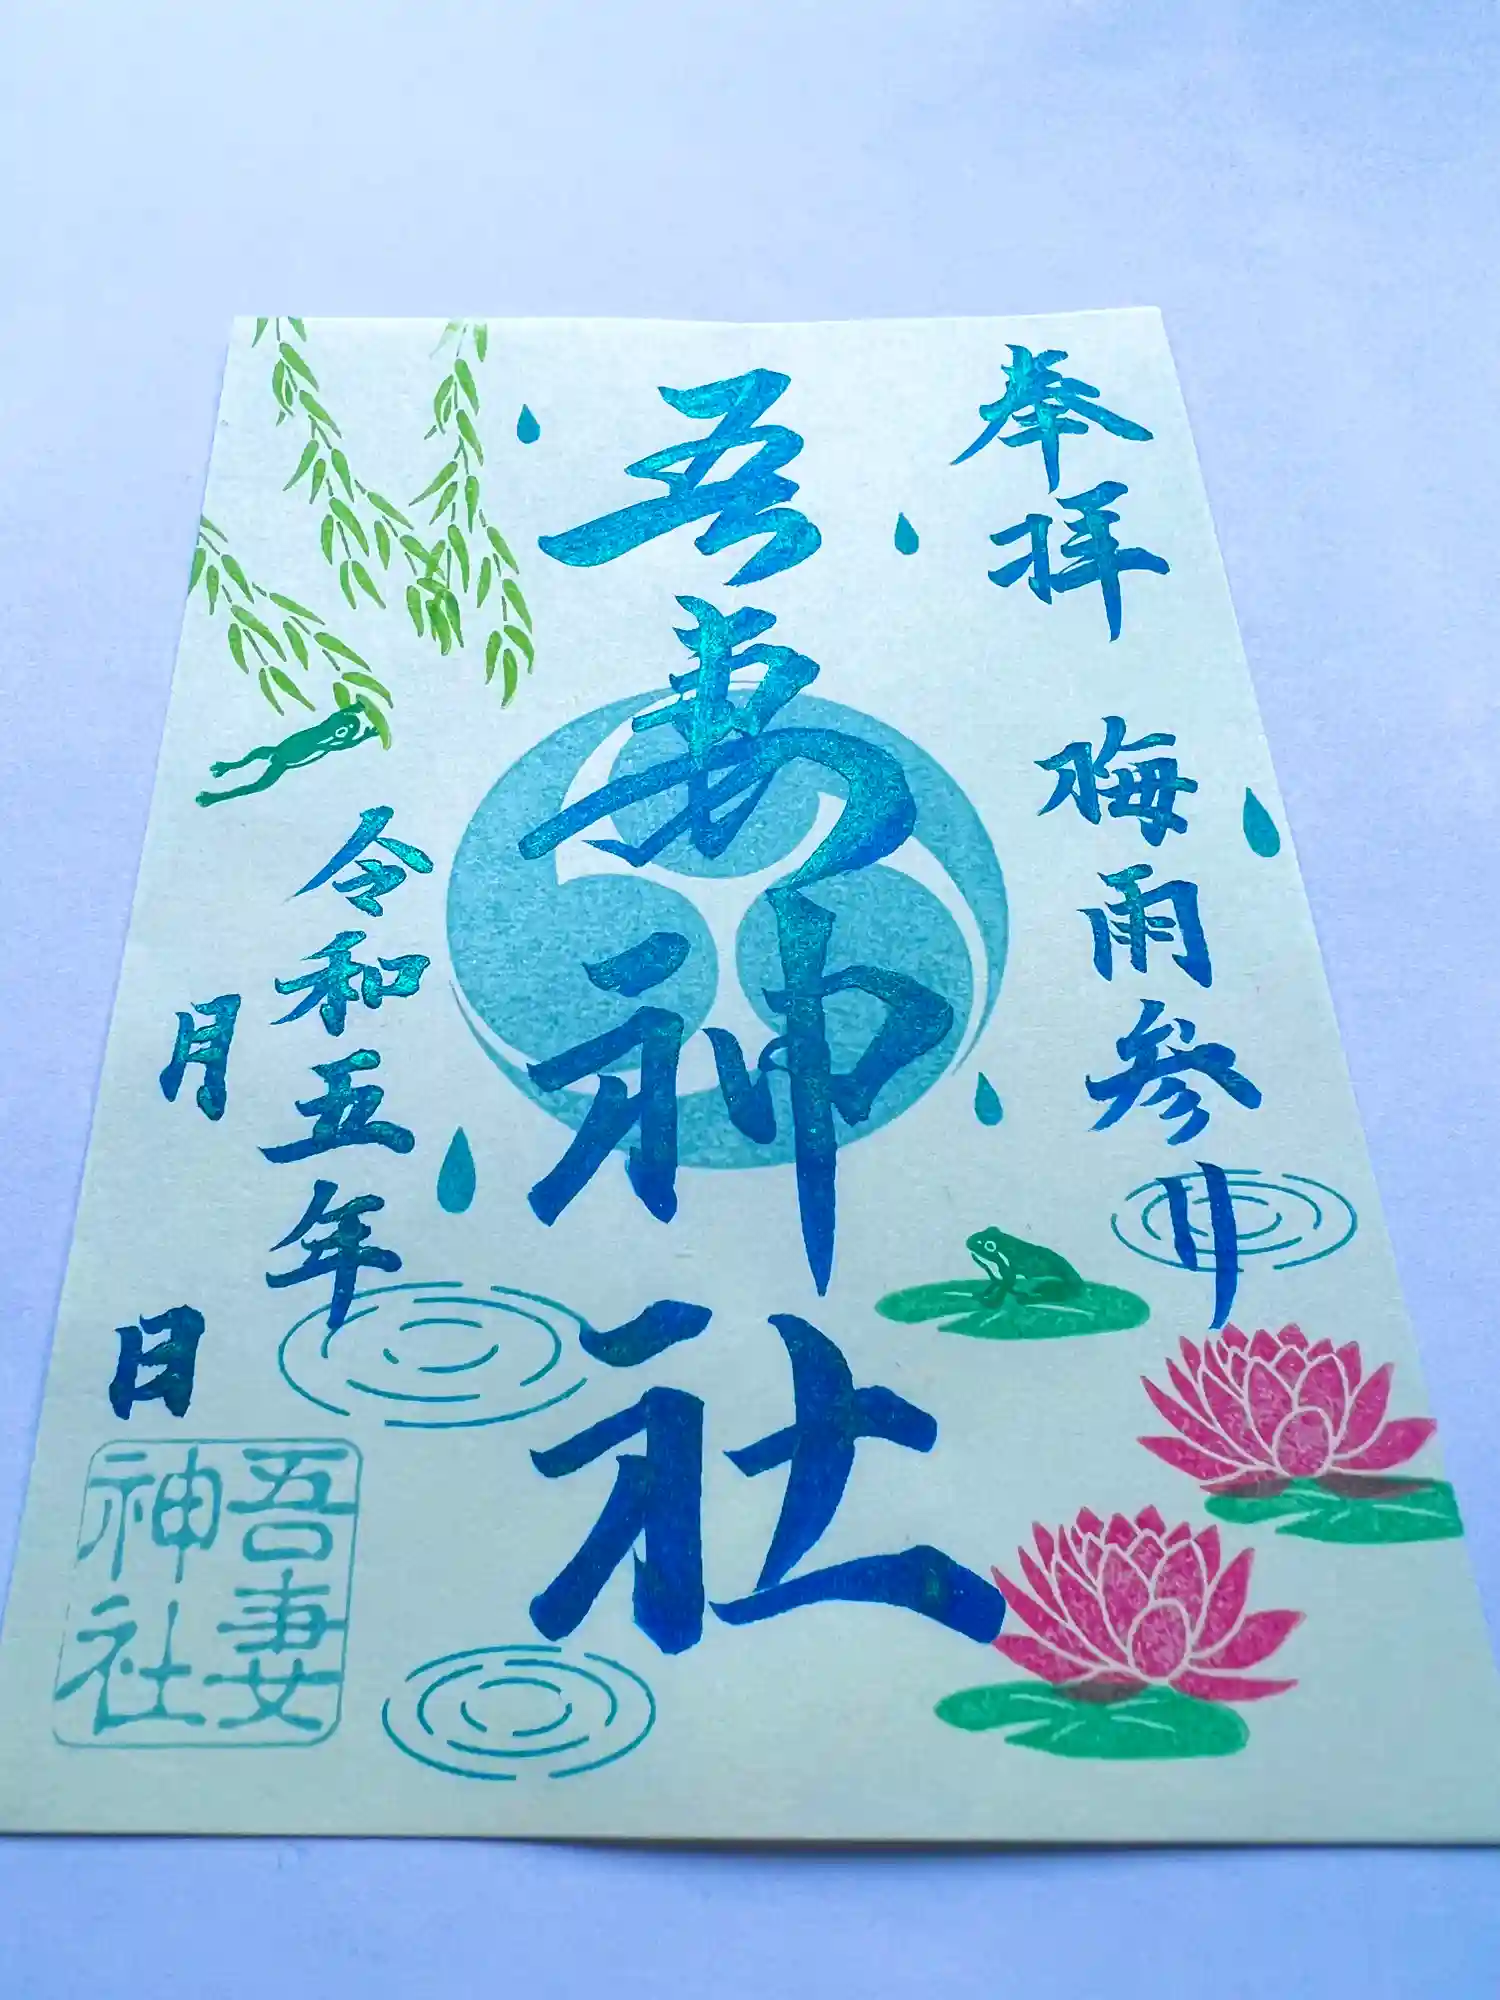 奉拝
梅雨参り
吾妻神社
令和五年
月
日
吾妻
神社